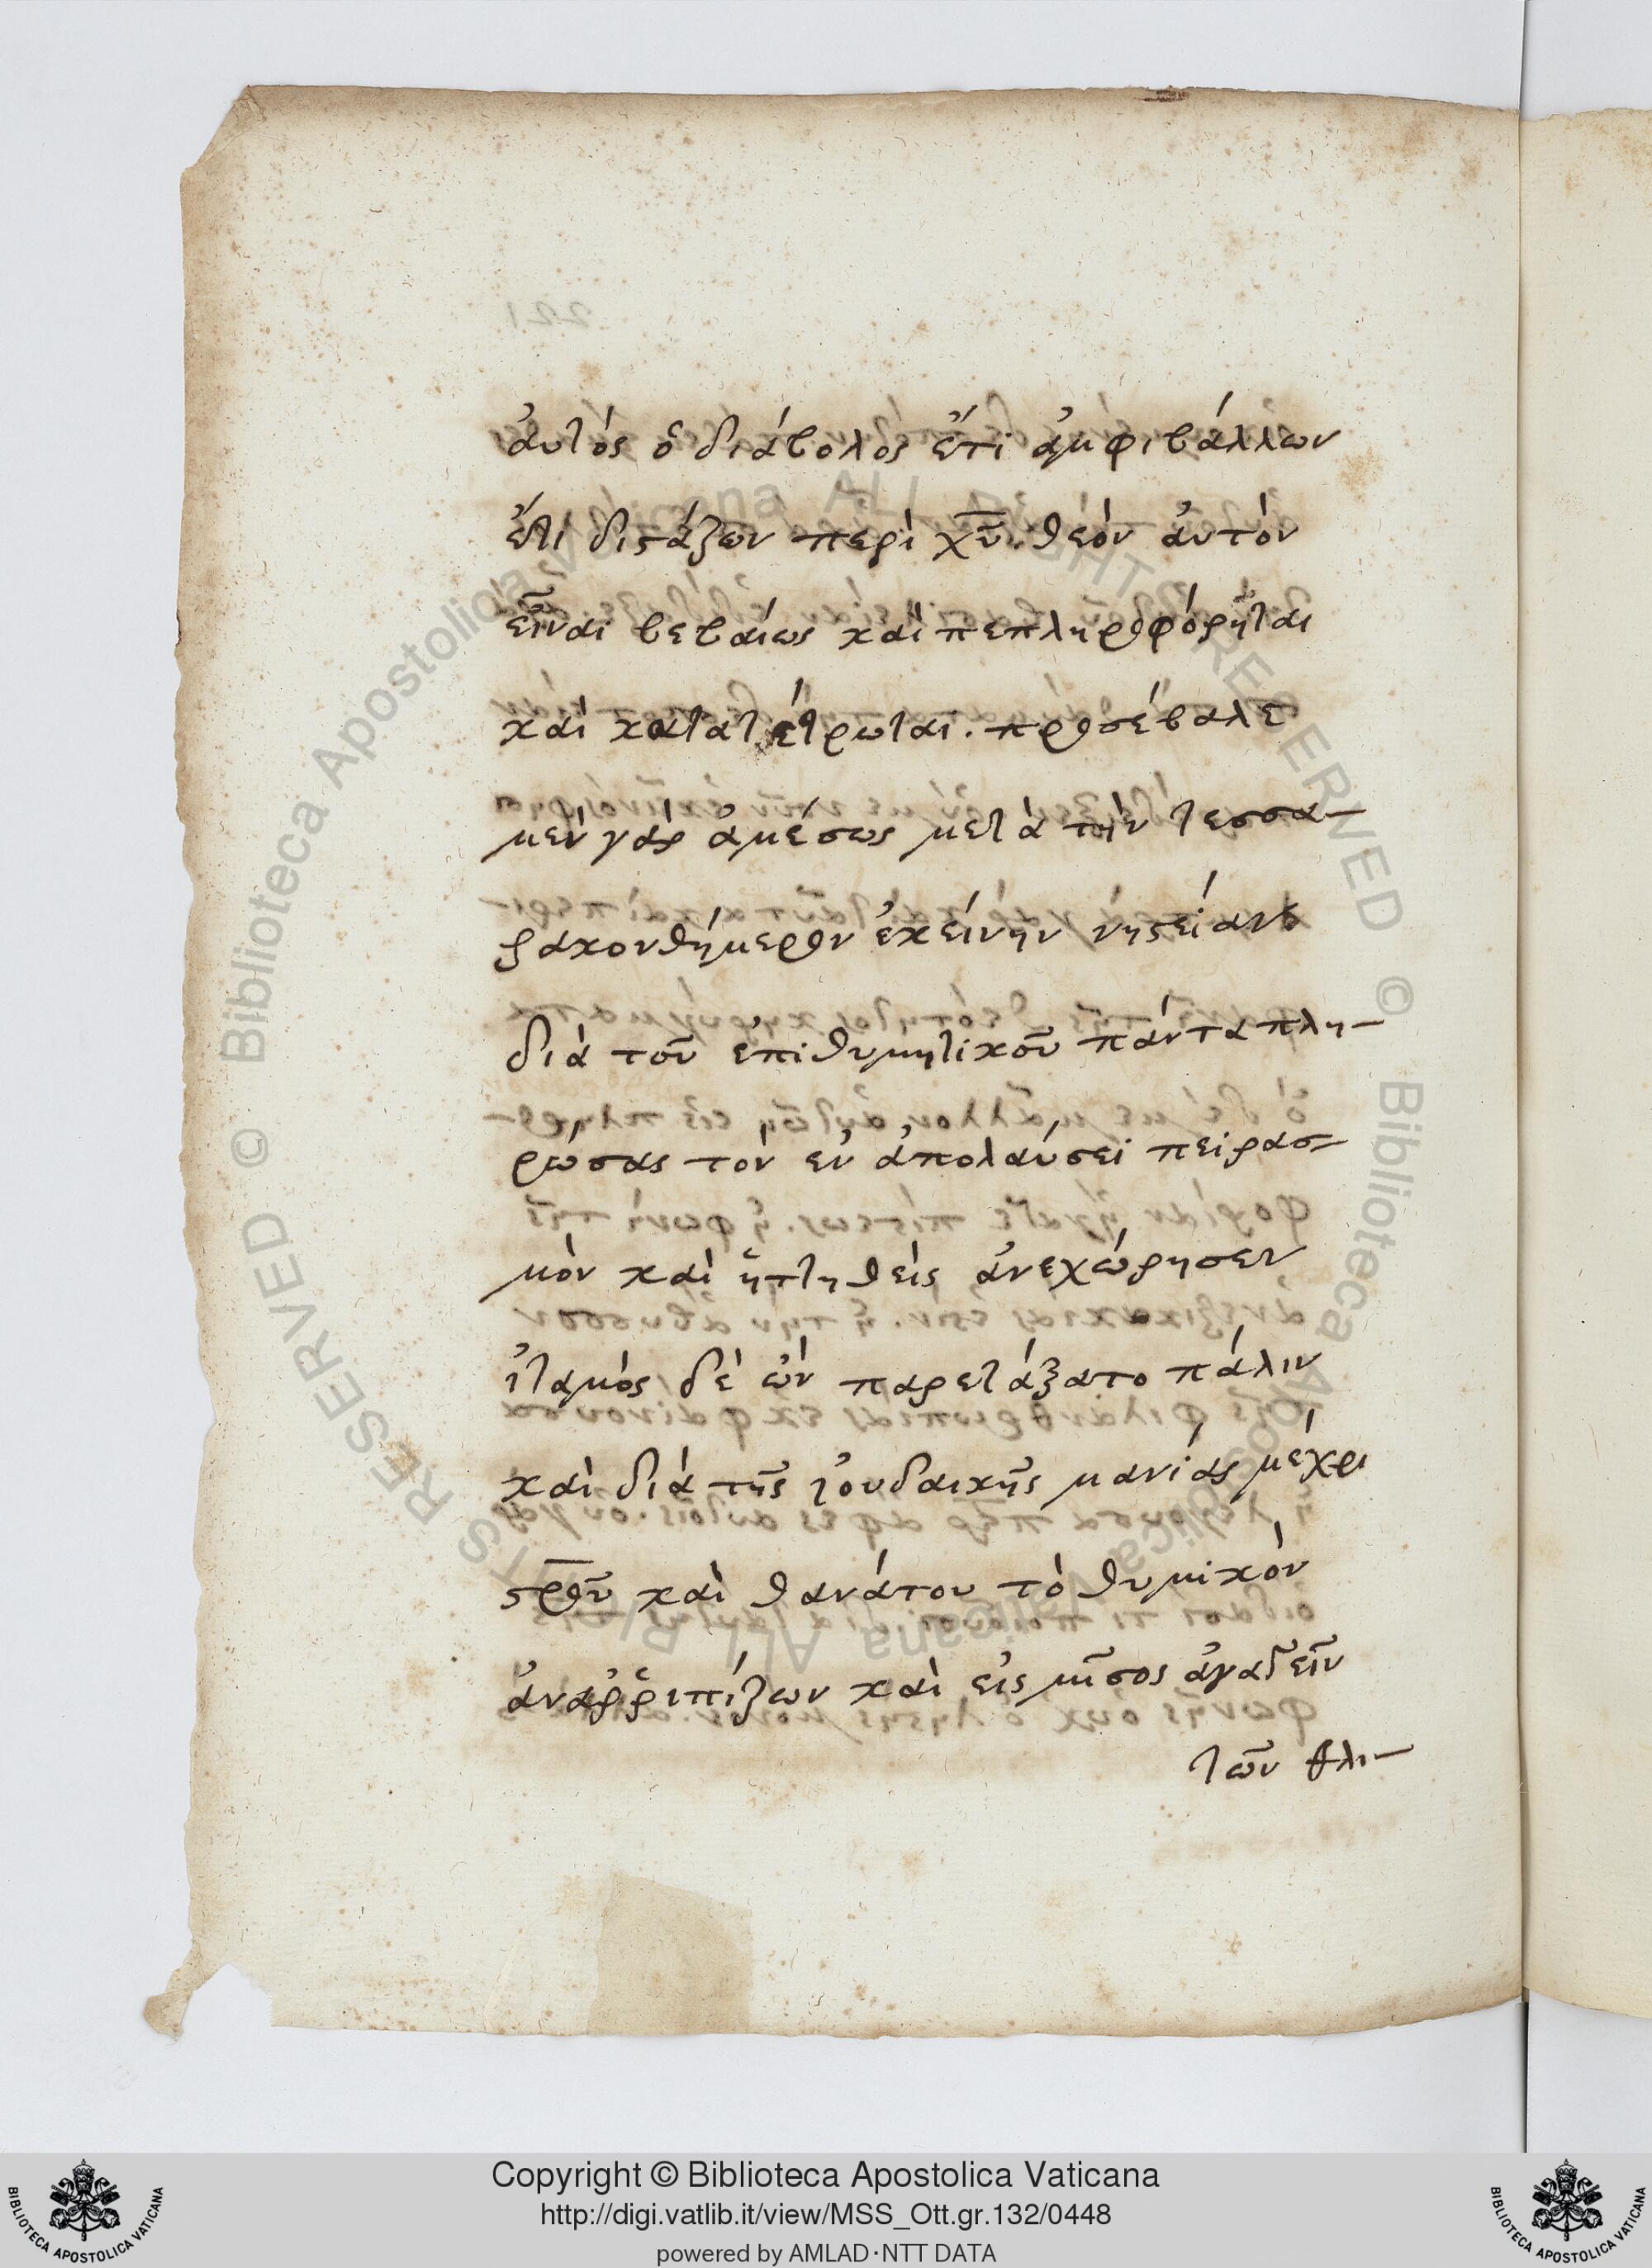 ἀυτός ὁ διάβολος ἔτι ἀμφιβάλλων
ἔτι διστάζων περὶ χ̅υ̅. θεὸν ἀυτὸν
εἶναι βεβαίως καὶ πεπληροφόρηται
καὶ κατατέτρωται. προσέβαλε
μὲν γὰρ ἀμέσως μετὰ τὴν τεσσα-
ρακονθήμερον ἐκείνην νηστείαν
διὰ τοῦ ἐπιθυμητικοῦ πάντα πλη-
ρώσας τὸν ἐν ἀπολαύσει πειρασ-
μὸν καὶ ἡττηθεὶς ἀνεχώρησεν
ἰταμὸς δὲ ὢν παρετάξατο πάλιν
καὶ διὰ τῆς ἰουδαικῆς μανίας μέχρι
σ̅ρ̅ο̅ῦ̅ καὶ θανάτου τὸ θυμικὸν
ἀναῤῥιπίζων καὶ εἰς μῖσος ἀγαγεῖν
τῶν θλι-
Copyright © Biblioteca Apostolica Vaticana
http://digi.vatlib.it/view/MSS_Ott.gr.132/0448
powered by AMLAD·NTT DATA
BIBLIOTECA APOSTOLICA VATICANA
BIBLIOTECA APOSTOLICA VATICANA